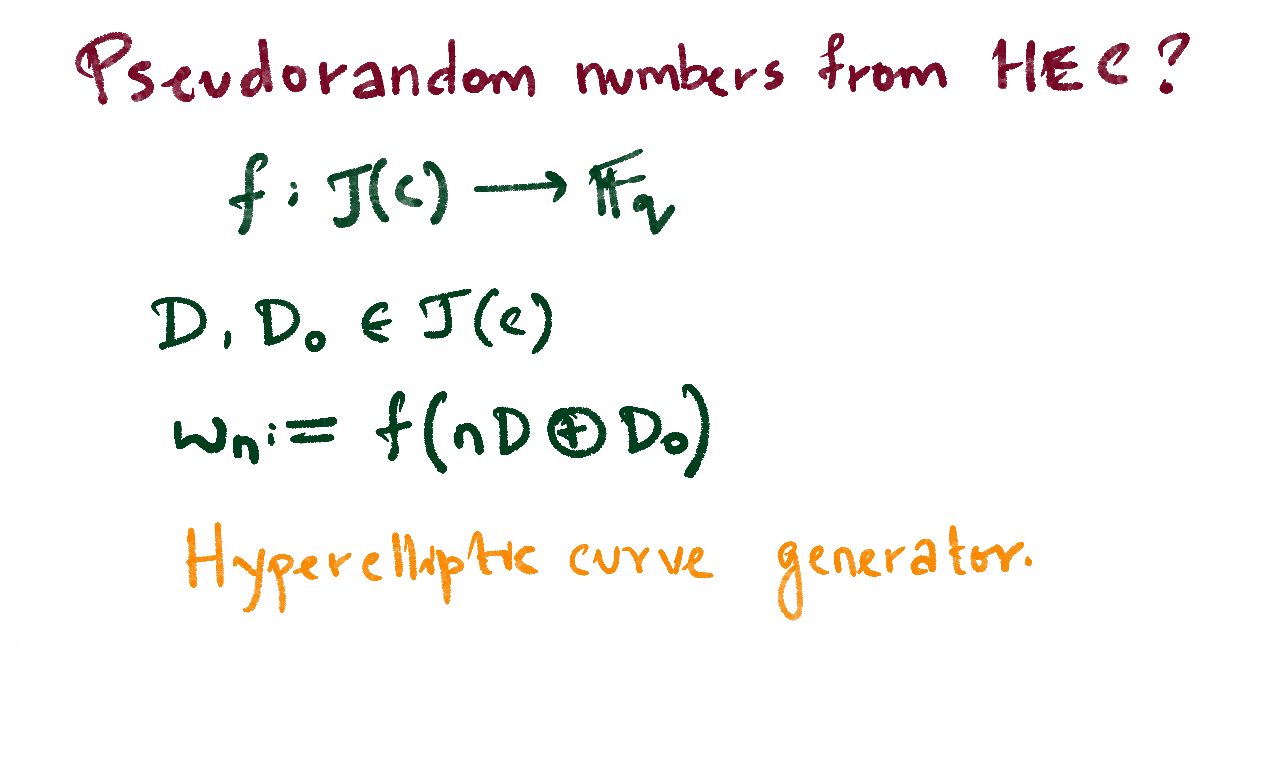 Pseudorandom numbers from HEC?
f: J(C) → 𝔽q
D, D₀ ∈ J(C)
wₙ := f(nD ⊕ D₀)
Hyperelliptic curve generator.